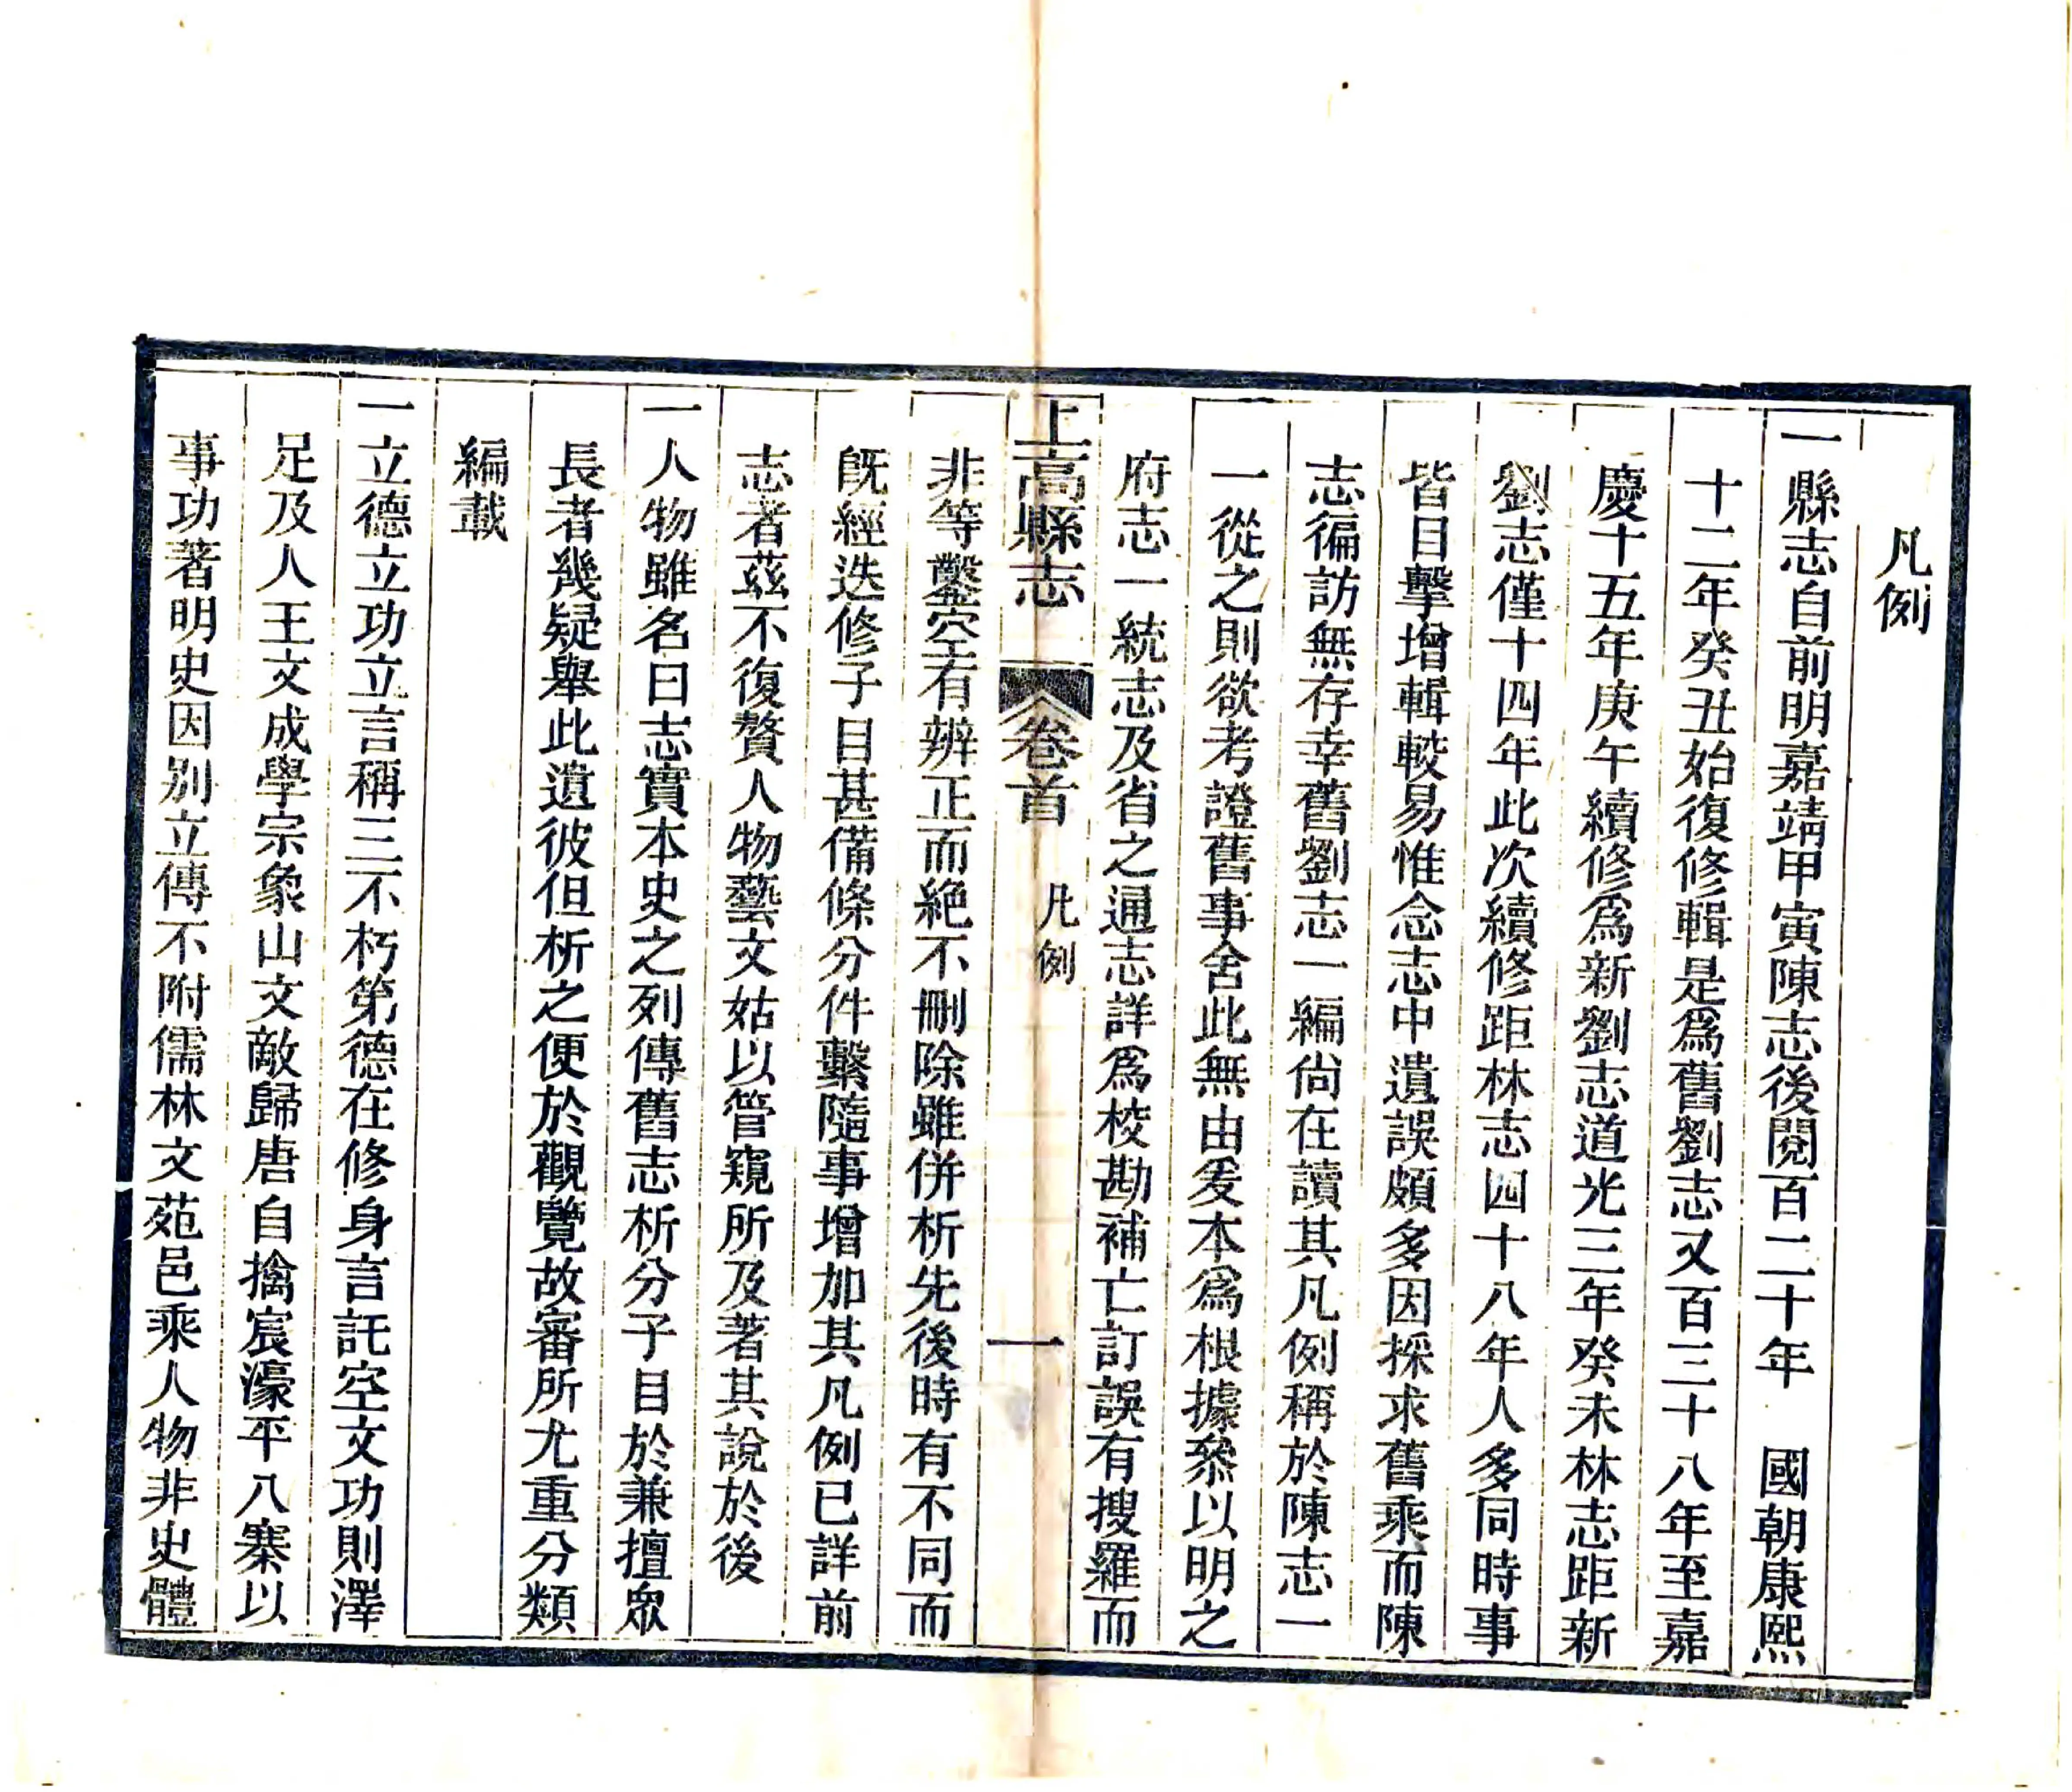 凡例
一縣志自前明嘉靖甲寅陳志後閱百二十年 國朝康熙
十二年癸丑始復修輯是爲舊劉志又百三十八年至嘉
慶十五年庚午續修爲新劉志道光三年癸未林志距新
劉志僅十四年此次續修距林志四十八年人多同時事
皆目擊增輯較易惟念志中遺誤頗多因採求舊乘而陳
志徧訪無存幸舊劉志一編尙在讀其凡例稱於陳志一
一從之則欲考證舊事舍此無由爰本爲根據叅以明之
府志一統志及省之通志詳爲校勘補亡訂誤有搜羅而
上高縣志 卷首 凡例 一
非等鑿空有辨正而絕不刪除雖併析先後時有不同而
旣經迭修子目甚備條分件繫隨事增加其凡例已詳前
志者茲不復贅人物藝文姑以管窺所及著其說於後
一人物雖名曰志實本史之列傳舊志析分子目於兼擅眾
長者幾疑舉此遺彼但析之便於觀覽故審所尤重分類
編載
一立德立功立言稱三不朽第德在修身言託空文功則澤
足及人王文成學宗象山文敵歸唐自擒宸濠平八寨以
事功著明史因別立傳不附儒林文苑邑乘人物非史體